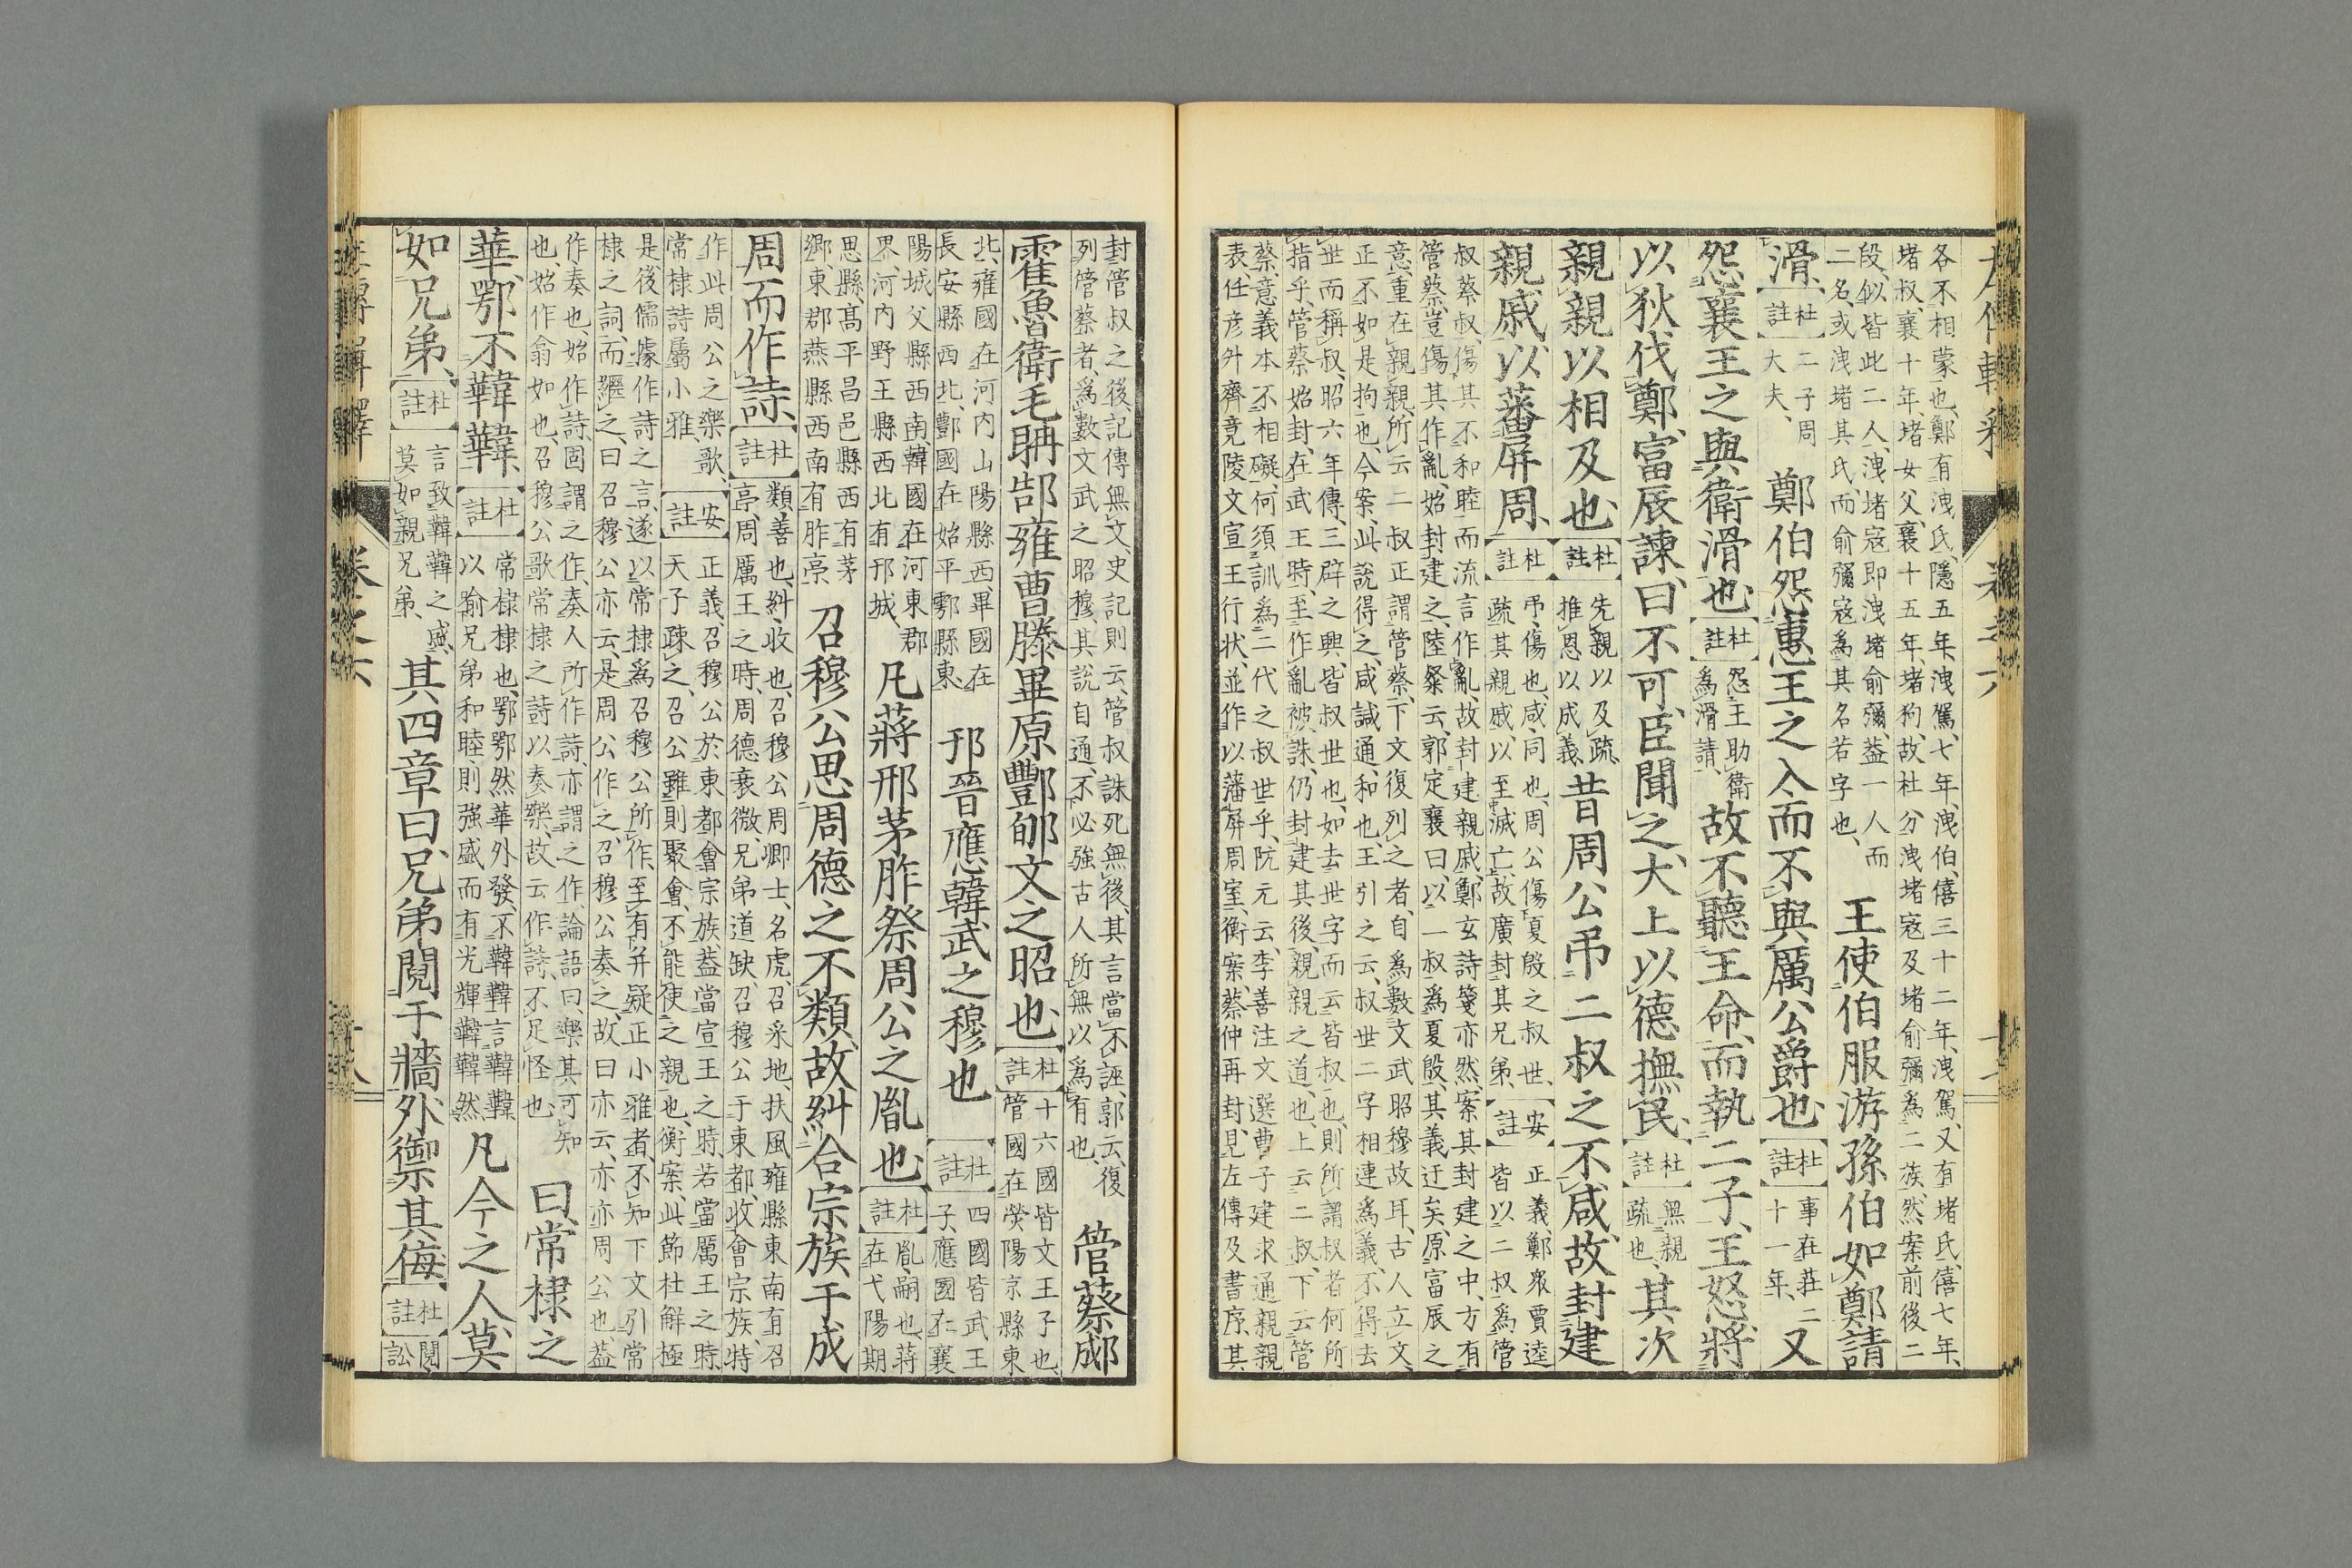 各不相蒙也、鄭有洩氏、隱五年、洩駕、七年、洩伯、僖三十二年、洩駕、又有堵氏、僖七年、
堵叔、襄十年、堵女父、襄十五年、堵狗、故杜分洩堵寇及堵俞彌為二族、然案前後二
段、似皆此二人、洩堵寇即洩堵俞彌、葢一人而
二名、或洩堵其氏、而俞彌寇為其名若字也、
王使伯服游孫伯如鄭請
滑、
杜註
二子周
大夫、
鄭伯怨惠王之入而不與厲公爵也、
杜註
事在莊二
十一年、
又
怨襄王之與衛滑也、
杜註
怨王助衛
為滑請、
故不聽王命、而執二子、王怒、將
以狄伐鄭、富辰諫曰、不可、臣聞之、大上以德撫民、
杜註
無親
疏也、
其次
親親以相及也、
杜註
先親以及疏、
推恩以成義、
昔周公弔二叔之不咸、故封建
親戚、以蕃屏周、
杜註
弔、傷也、咸、同也、周公傷夏殷之叔世、
疏其親戚、以至滅亡、故廣封其兄弟、
安註
正義、鄭衆賈逵
皆以二叔為管
叔蔡叔、傷其不和睦而流言作亂、故封建親戚、鄭玄詩箋亦然、案其封建之中、方有
管蔡、豈傷其作亂、始封建之、陸粲云、郭定襄曰、以二叔為夏殷、其義迂矣、原富辰之
意、重在親親、所云二叔正謂管蔡、下文復列之者、自為數文武昭穆故耳、古人立文、
正不如是拘也、今案、此說得之、咸諴通、和也、王引之云、叔世二字相連為義、不得去
世而稱叔、昭六年傳、三辟之興、皆叔世也、如去世字而云皆叔也、則所謂叔者何所
指乎、管蔡始封、在武王時、至作亂被誅、仍封建其後、親親之道也、上云二叔、下云管
蔡、意義本不相礙、何須訓為二代之叔世乎、阮元云、李善注文選曹子建求通親親
表、任彦升齊竟陵文宣王行狀、並作以藩屏周室、衡案、蔡仲再封、見左傳及書序、其
封管叔之後、記傳無文、史記則云、管叔誅死無後、其言當不誣、郭云、復
列管蔡者、為數文武之昭穆、其說自通、不必強古人所無以為有也、
管蔡郕
霍魯衛毛聃郜雍曹滕畢原酆郇文之昭也、
杜註
十六國皆文王子也、
管國在熒陽京縣東
北、雍國在河内山陽縣西、畢國在
長安縣西北、酆國在始平鄠縣東、
邘晉應韓武之穆也
杜註
四國皆武王
子、應國在襄
陽城父縣西南、韓國在河東郡
界、河内野王縣西北有邘城、
凡蔣邢茅胙祭周公之胤也、
杜註
胤、嗣也、蔣
在弋陽期
思縣、高平昌邑縣西有茅
鄉、東郡燕縣西南有胙亭、
召穆公思周德之不類、故糾合宗族于成
周而作詩、
杜註
類、善也、糾、收也、召穆公周卿士、名虎、召采地、扶風雍縣東南有召
亭、周厲王之時、周德衰微、兄弟道缺、召穆公于東都、收會宗族、特
作此周公之樂歌、
常棣詩屬小雅、
安註
正義、召穆公於東都會宗族、葢當宣王之時、若當厲王之時、
天子疎之、召公雖則聚會、不能使之親也、衡案、此節杜解極
是、後儒據作詩之言、遂以常棣為召穆公所作、至有并疑正小雅者、不知下文引常
棣之詞、而繼之、曰召穆公亦云、是周公作之、召穆公奏之、故曰亦云、亦亦周公也、葢
作、奏也、始作詩、固謂之作、奏人所作詩、亦謂之作、論語曰、樂其可知
也、始作翕如也、召穆公歌常棣之詩以奏樂、故云作詩、不足怪也、
曰、常棣之
華、鄂不韡韡、
杜註
常棣、棣也、鄂鄂然華外發、不韡韡言韡韡、
以喻兄弟和睦、則強盛而有光輝韡韡然、
凡今之人、莫
如兄弟、
杜註
言致韡韡之盛、
莫如親兄弟、
其四章曰、兄弟鬩于牆、外禦其侮、
杜註
鬩、
訟
卷之六